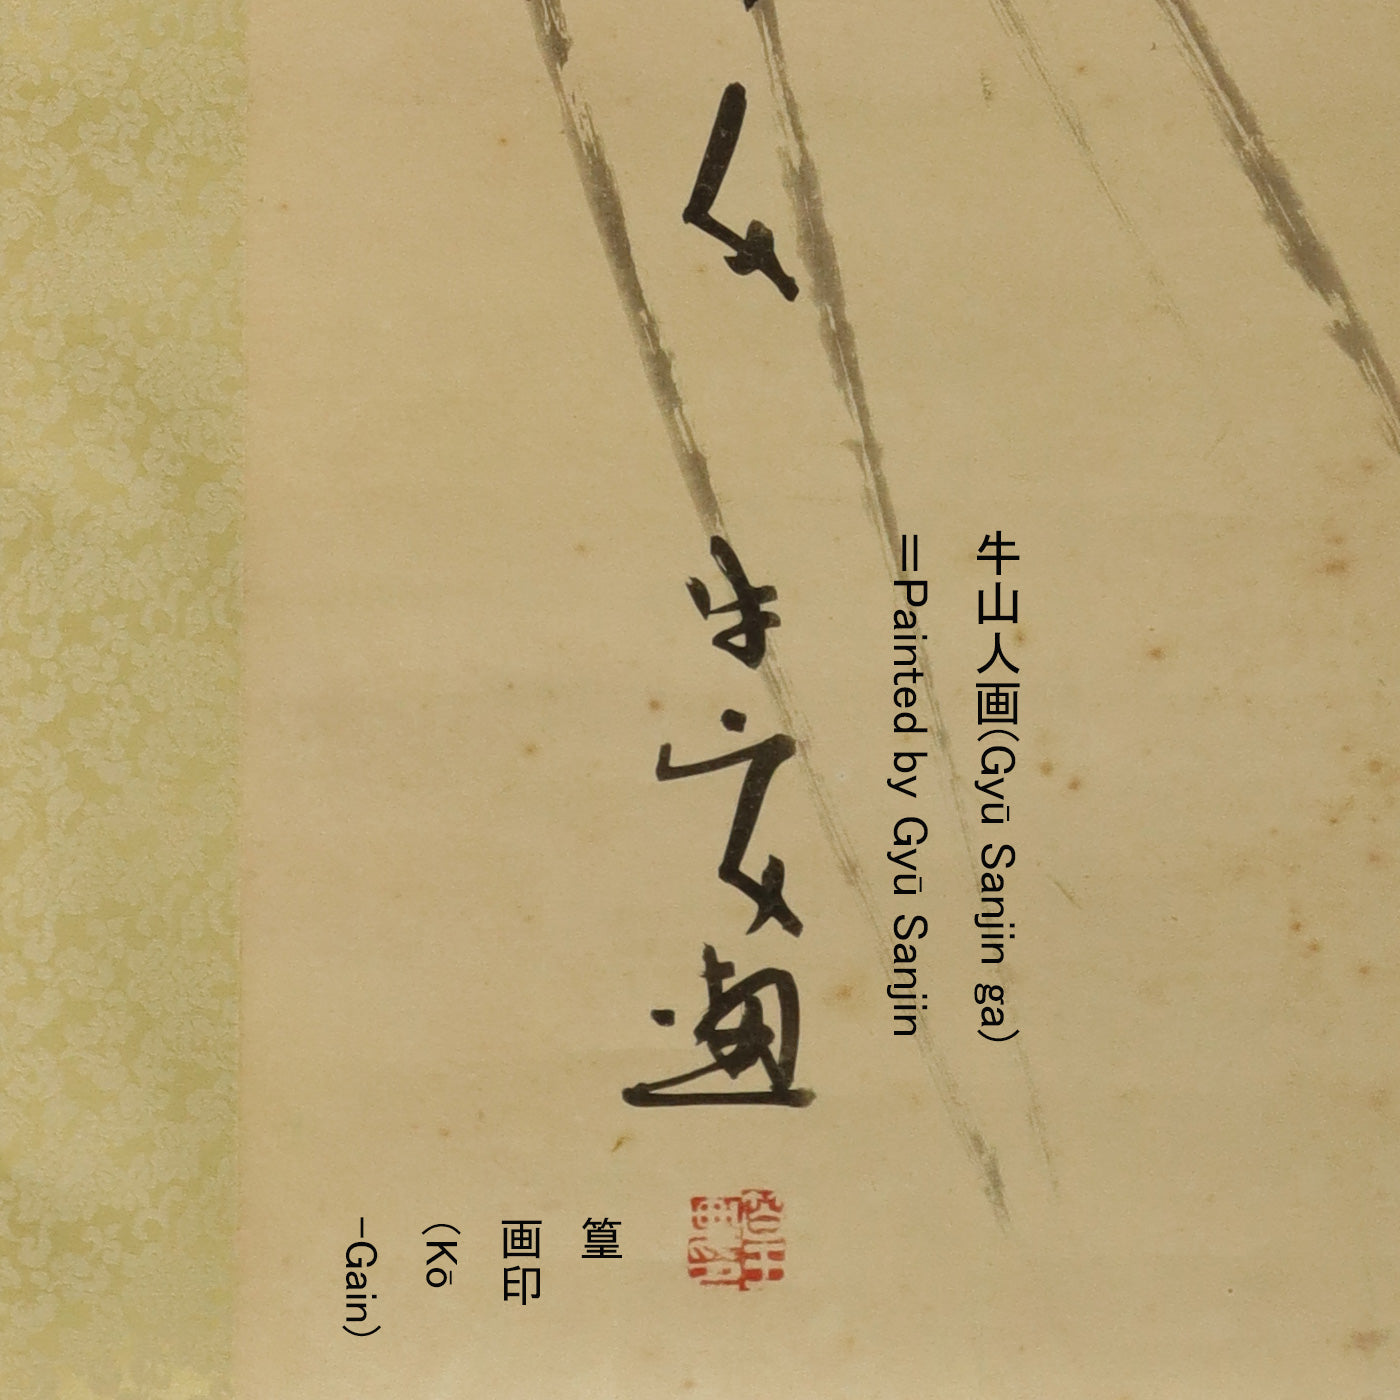 牛山人画(Gyū Sanjin ga)
＝Painted by Gyū Sanjin
牛山人画
篁
画印
(Kō
-Gain)